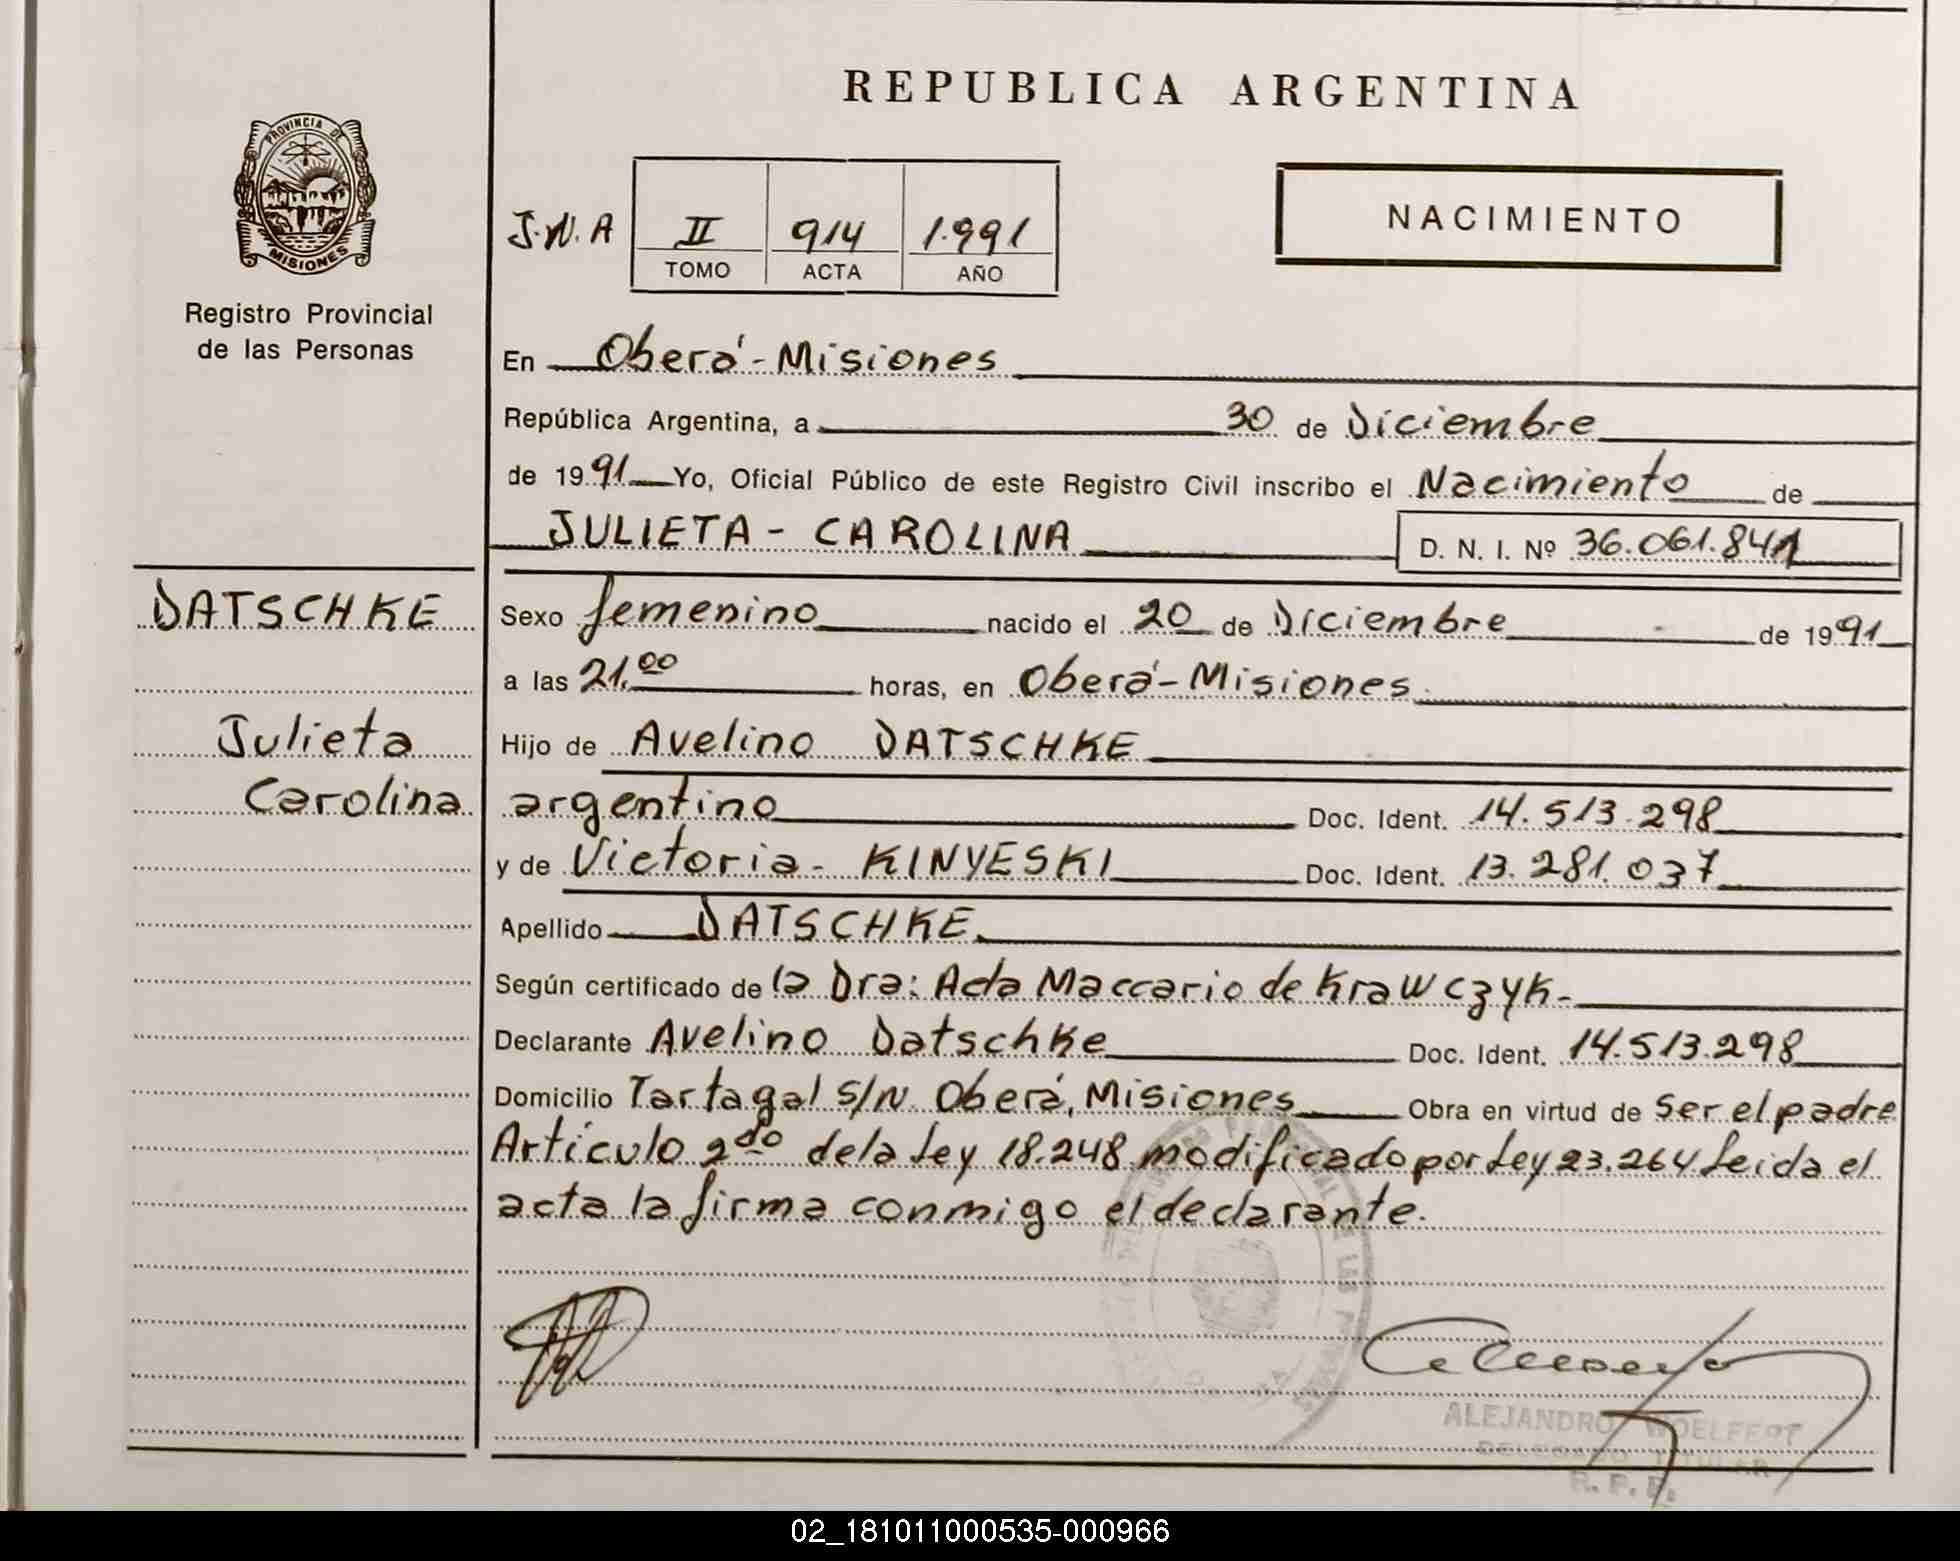 REPUBLICA ARGENTINA
PROVINCIA DE
MISIONES
Registro Provincial
de las Personas
J.N.A II 914 1.991
TOMO ACTA AÑO
NACIMIENTO
En Oberá - Misiones
República Argentina, a 30 de Diciembre
de 1991 Yo, Oficial Público de este Registro Civil inscribo el Nacimiento de
JULIETA - CAROLINA D. N. I. Nº 36.061.841
DATSCHKE
Julieta
Carolina
Sexo femenino nacido el 20 de Diciembre de 1991
a las 21.00 horas, en Oberá - Misiones.
Hijo de Avelino DATSCHKE
argentino Doc. Ident. 14.513.298
y de Victoria - KINYESKI Doc. Ident. 13.281.037
Apellido DATSCHKE
Según certificado de la Dra: Acta Maccario de Krawczyk -
Declarante Avelino Datschke Doc. Ident. 14.513.298
Domicilio Tartagal S/N Oberá, Misiones Obra en virtud de Ser el padre
Artículo 2do de la Ley 18.248 modificado por Ley 23.264 Leida el
acta la firma conmigo el declarante.
ALEJANDRO WOELFERT
DELEGADO TITULAR
R. P. P.
02_181011000535-000966